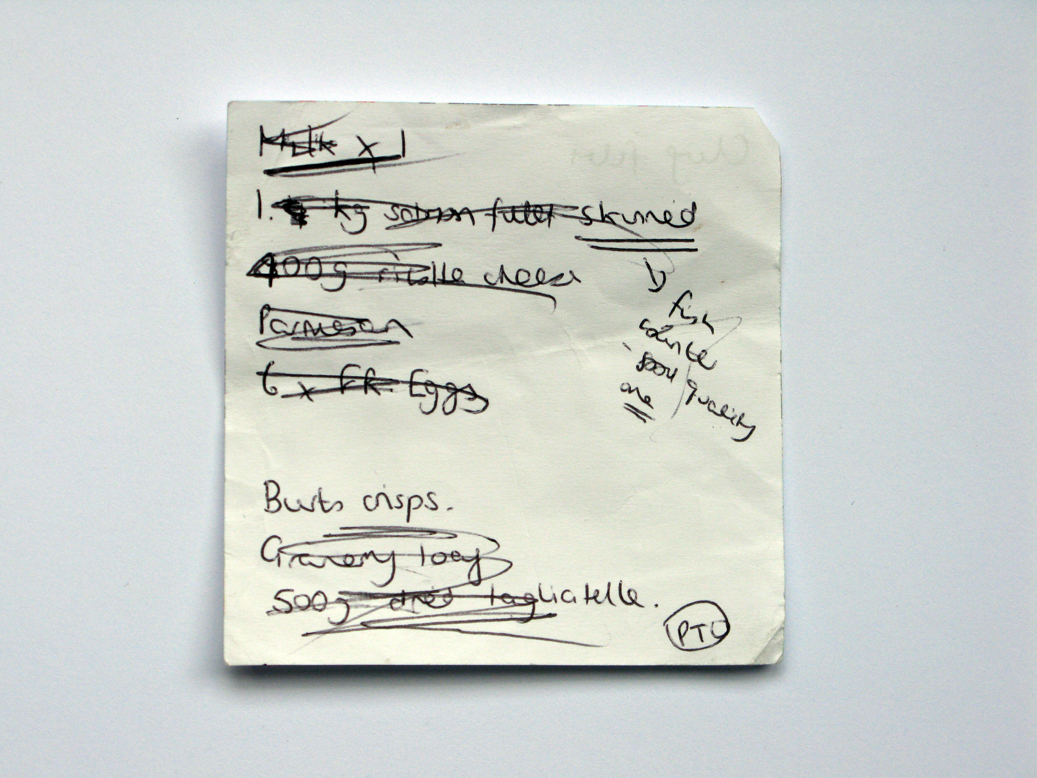 Milk x 1
1. kg salmon fillet skinned
400g ricotta cheese
Parmesan
6 x F.R. Eggs
fish
counter
good quality
one
Burts crisps.
Granary loaf
500g dried tagliatelle.
PTO